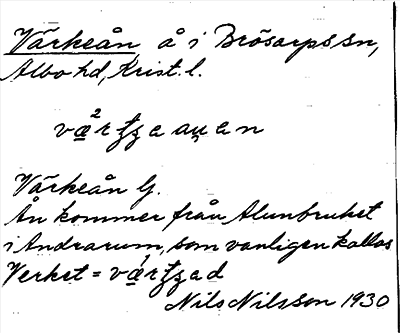 Värkeån å i Brösarps sn,
Albo hd, Krist. l.
Värkeån G.
Ån kommer från Alunbruket
i Andrarum, som vanligen kallas
Verket =
Nils Nilsson 1930